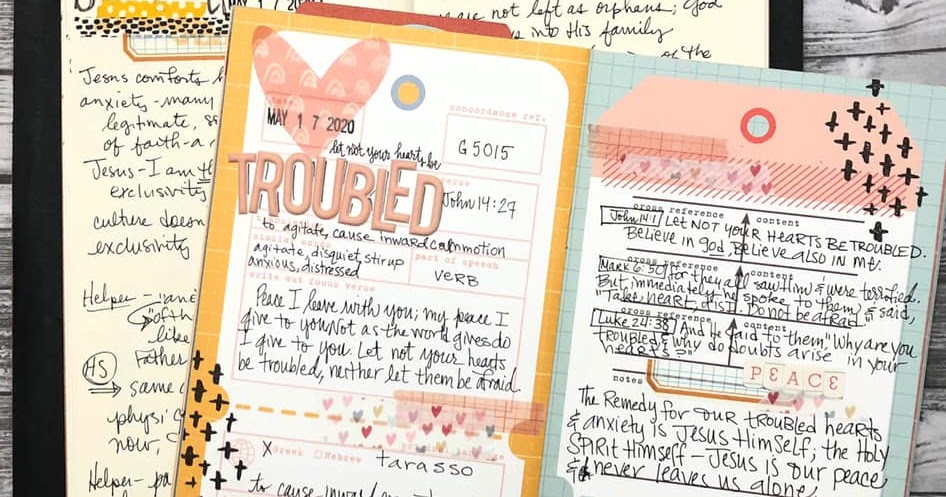 MAY 1 7 2020
are not left as orphans; God
us into His family
of the
Jesus comforts
anxiety - many
legitimate,
of faith - a
Jesus - I am the
exclusivity
culture doesn
exclusivity
Helper -
of the
like
HS
Father
same
physi
now,
Helper -
date
MAY 1 7 2020
concordance ref.
G5015
let not your hearts be
TROUBLED
John 14:27
to agitate, cause inward commotion
similar words
agitate, disquiet, stir up
anxious, distressed
part of speech
VERB
write out focus verse
Peace I leave with you; my peace I
give to you. Not as the world gives do
I give to you. Let not your hearts
be troubled, neither let them be afraid.
X Greek Hebrew
tarasso
to cause inward
cross reference content
John 14:1 Let NOT your HEARTS BE TROUBLED.
Believe in God, Believe ALSO IN ME.
cross reference content
Mark 6:50 for they all saw Him & were terrified.
But immediately he spoke to them & said,
"Take heart, it is I. Do not be afraid."
cross reference content
Luke 24:38 And He said to them, "Why are you
troubled, & why do doubts arise in your
hearts?"
PEACE
notes
The Remedy for our troubled hearts
& anxiety is Jesus Himself; the Holy
Spirit Himself - Jesus is our peace
& never leaves us alone,